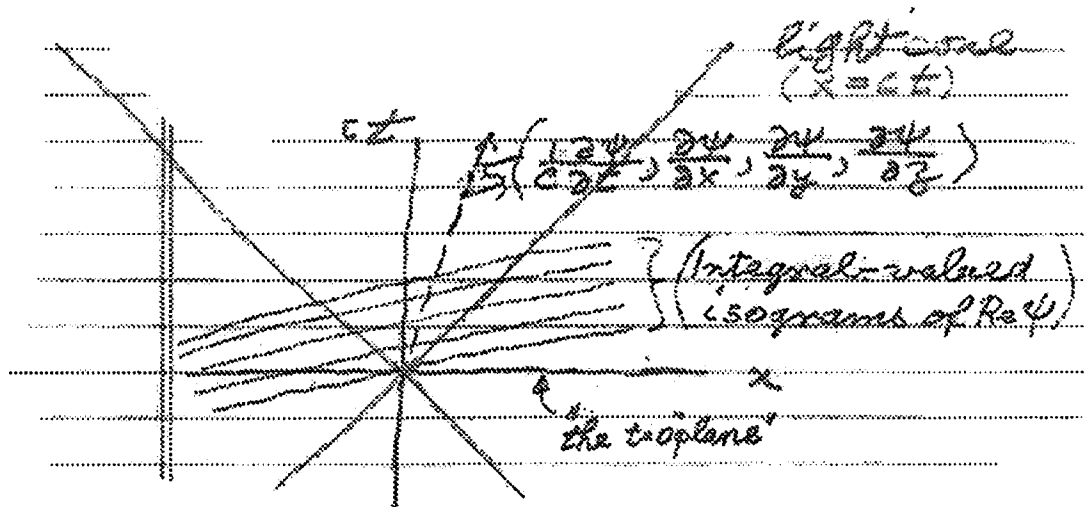 light-cone
(x = ct)
ct
(1/c ∂ψ/∂t, ∂ψ/∂x, ∂ψ/∂y, ∂ψ/∂z)
(Integral-valued
isograms of Re ψ)
x
"the t=0 plane"